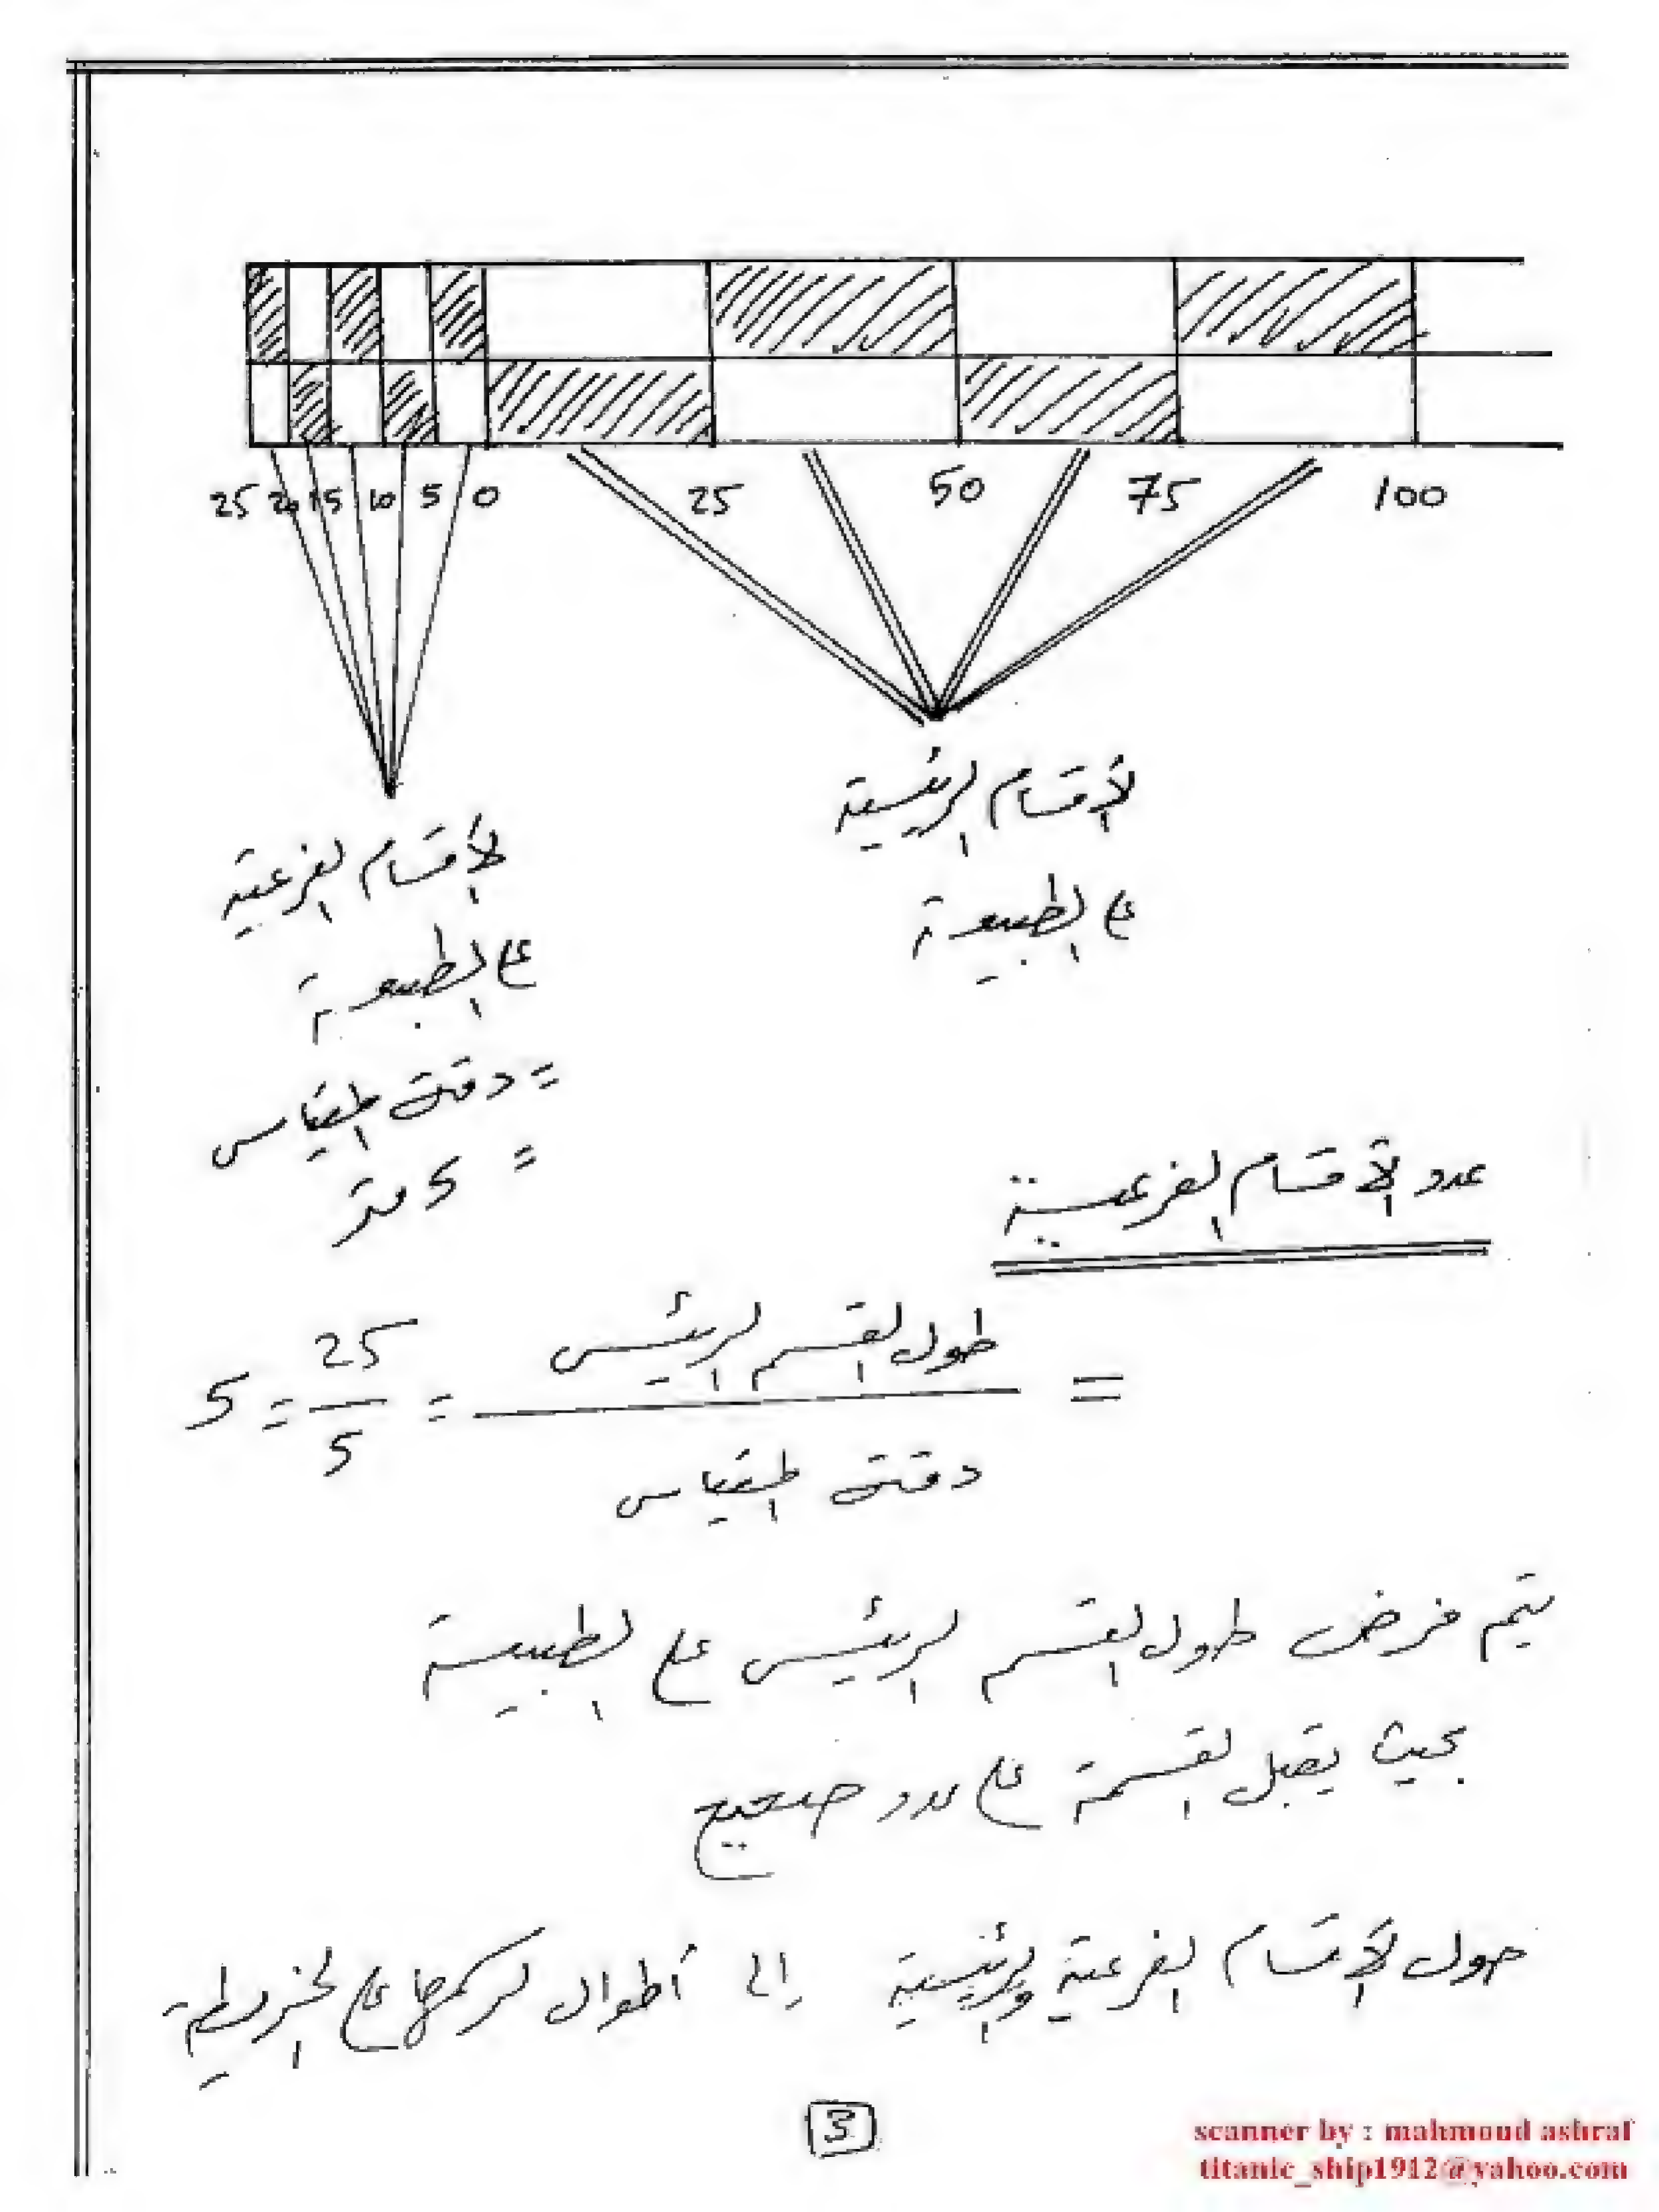 25 20 15 10 5 0 25 50 75 100
الأقسام الرئيسية
على الطبيعة
الأقسام الفرعية
على الطبيعة
= دقة المقياس
= 5 متر
عدد الأقسام الفرعية
= طول القسم الرئيسى / دقة المقياس = 25 / 5 = 5
يتم فرض طول القسم الرئيسى على الطبيعة
بحيث يقبل القسمة على عدد صحيح
حول الأقسام الفرعية والرئيسية إلى أطوال لرسمها على الخريطة
3
scanner by : mahmoud ashraf
titanic_ship1912@yahoo.com